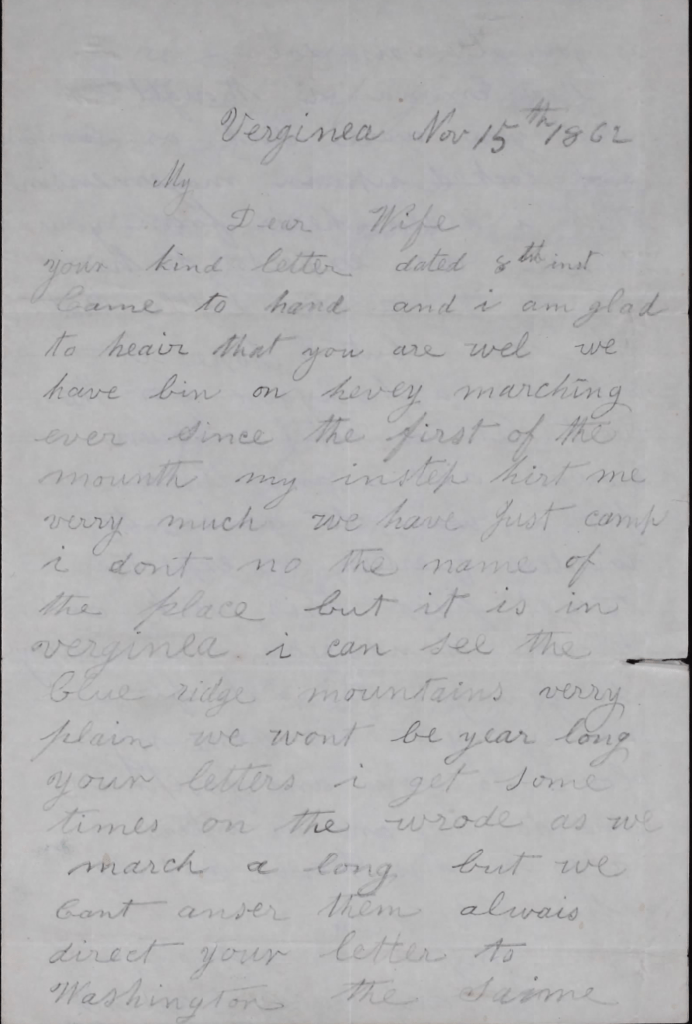 Verginea Nov 15th 1862
My
Dear Wife
your kind letter dated 8th inst
Came to hand and i am glad
to heair that you are wel we
have bin on hevey marching
ever since the first of the
mounth my instep hirt me
verry much we have Just camp
i dont no the name of
the place but it is in
verginea. i can see the
blue ridge mountains verry
plain we wont be year long
your letters i get some
times on the wrode as we
march a long but we
Cant anser them alwais
direct your letter to
Washington the saime